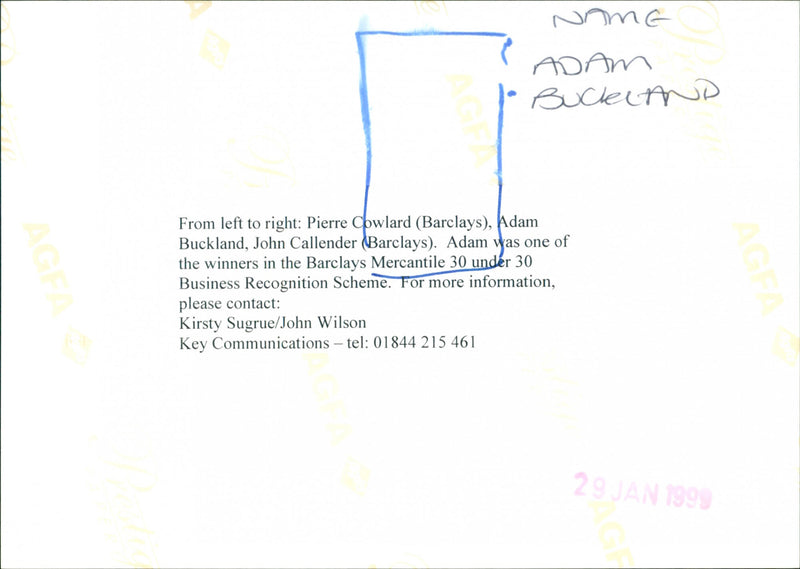 NAME
ADAM
BUCKLAND
AGFA
From left to right: Pierre Cowlard (Barclays), Adam
Buckland, John Callender (Barclays). Adam was one of
the winners in the Barclays Mercantile 30 under 30
Business Recognition Scheme. For more information,
please contact:
Kirsty Sugrue/John Wilson
Key Communications – tel: 01844 215 461
AGFA
AGFA
AGFA
29 JAN 1999
AGFA